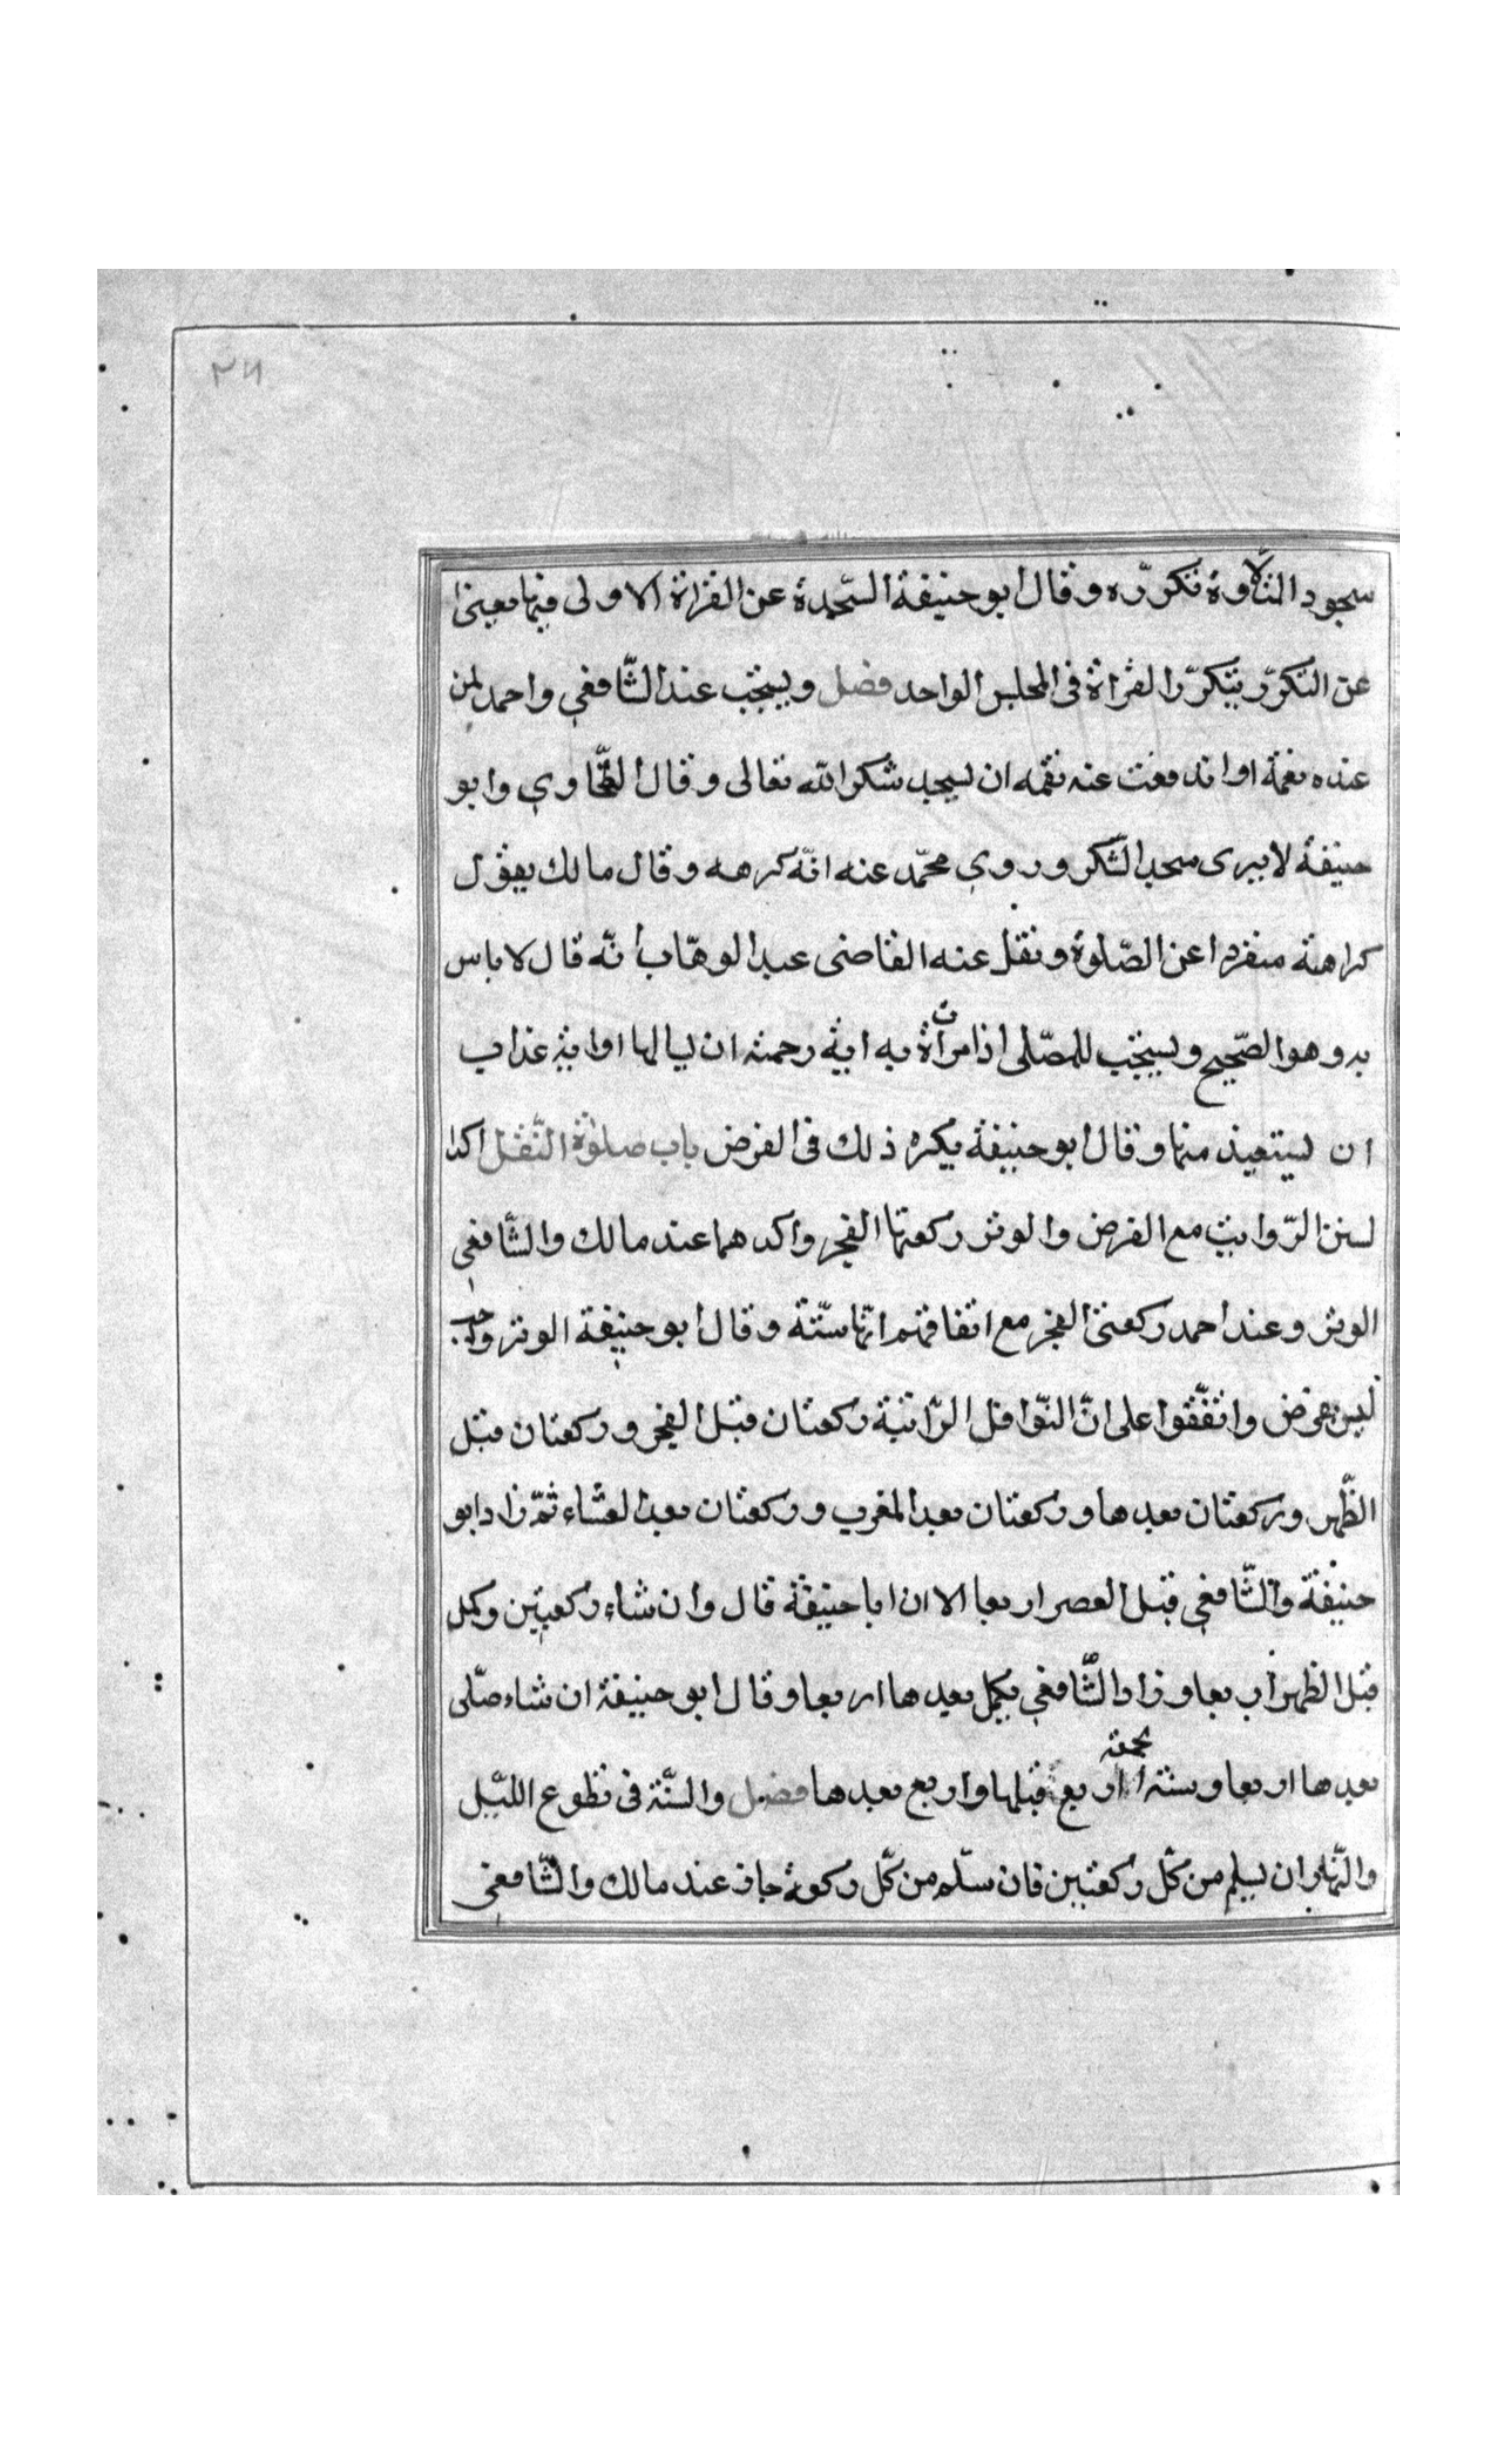 ٢٦
سجود التلاوة تكرّره وقال ابو حنيفة السّجدة عن القراة الاولى فيها معنى
عن التكرّر بتكرّر القراة فى المجلس الواحد فصل ويستحب عند الشّافعي واحمد لمن
عنده نعمة او اندفعت عنه نقمه ان يسجد شكرا لله تعالى وقال الطّحاوي وابو
حنيفة لا يرى سجد الشّكر وروي محمّد عنه انّه كرهه وقال مالك يقول
كراهة منفردا عن الصّلوة ونقل عنه القاضى عبد الوهّاب انّه قال لا باس
به وهو الصّحيح ويستحب للمصّلى اذا مرأة ت به اية رحمته ان يسالها او اية عذاب
ان يستعيذ منها وقال ابو حنيفة يكره ذلك فى الفرض باب صلوة النّفل اكدا
لسنن الرّواتب مع الفرض والوتر ركعتا الفجر واكدهما عند مالك والشّافعي
الوتر وعند احمد ركعتى الفجر مع اتفاقهم انّها سنّة وقال ابو حنيفة الوتر واجب
ليس بفرض واتّفقوا على انّ النّوافل الرّاتبة ركعتان قبل الفجر وركعتان قبل
الظّهر وركعتان بعدها وركعتان بعد المغرب وركعتان بعد العشاء ثمّ زاد ابو
حنيفة والشّافعي قبل العصر اربعا الا ان ابا حنيفة قال وان شاء ركعتين وكمل
قبل الظهر اربعا وزاد الشّافعي بكمل بعدها اربعا وقال ابو حنيفة ان شاء صلّى
بعدها اربعا وسنة الجمعة اربع قبلها واربع بعدها فصل والسّنّة فى تطوع اللّيل
والنّهار ان يسلم من كّل ركعتين فان سلّم من كّل ركعة جاز عند مالك والشّافعى